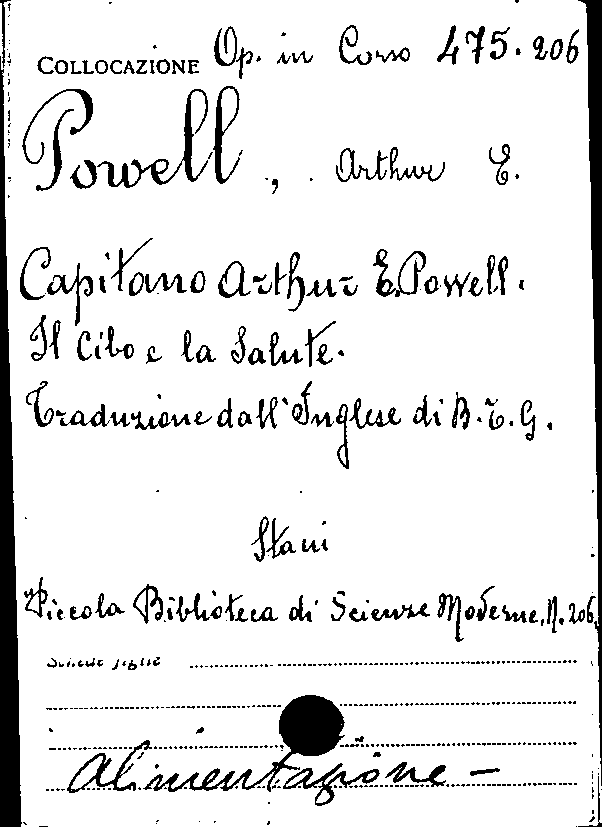 COLLOCAZIONE Op. in Corso 475.206
Powell, Arthur E.
Capitano Arthur E. Powell.
Il Cibo e la Salute.
Traduzione dall'Inglese di B.T.G.
Piccola Biblioteca di Scienze Moderne, N. 206.
Schede figlie
Alimentazione -